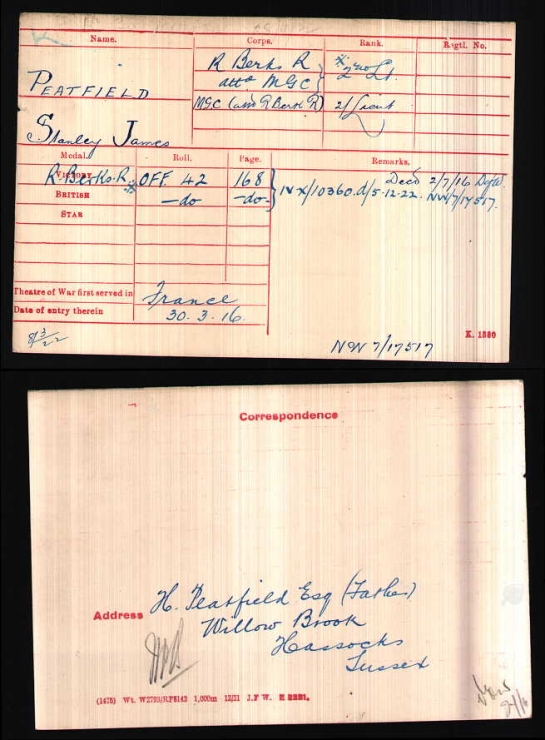 Name. Corps. Rank. Regtl. No.
R Berks R 2nd Lt.
PEATFIELD attd MGC
MGC (attd R Berk R) 2/Lieut
Stanley James
Medal. Roll. Page. Remarks.
VICTORY R. Berks. R. OFF. 42 168 Decd 2/7/16
BRITISH -do- -do- IV X/10360.d/5-12-22. NW/7/17517.
STAR
Theatre of War first served in France
Date of entry therein 30.3.16
NW 7/17517 K. 1380
Correspondence
Address H. Peatfield Esq (Father)
Willow Brook
Hassocks
Sussex
(1475) Wt. W2793/RP5143 1,000m 12/21 J.F.W. E 2321.